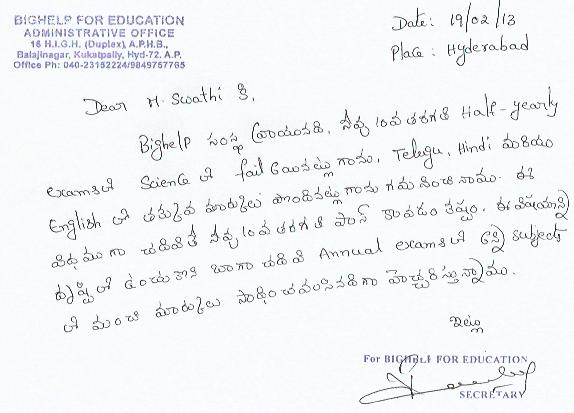 BIGHELP FOR EDUCATION
ADMINISTRATIVE OFFICE
16 H.I.G.H. (Duplex), A.P.H.B.,
Balajinagar, Kukatpally, Hyd-72. A.P.
Office Ph: 040-23152224/9849757765
Date: 19/02/13
Place: Hyderabad
Dear M. Swathi కి,
Bighelp సంస్థ వ్రాయునది, నీవు 10వ తరగతి Half-yearly
examsలో Science లో fail అయినట్లు గాను, Telugu, Hindi మరియు
English లో తక్కువ మార్కులు పొందినట్లు గాను గమనించినాము. ఈ
విధముగా చదివితే నీవు 10వ తరగతి పాస్ కావడం కష్టం. ఈ విషయాన్ని
దృష్టిలో ఉంచుకొని బాగా చదివి Annual examsలో అన్ని subjects
లో మంచి మార్కులు సాధించవలసినదిగా హెచ్చరిస్తున్నాము.
ఇట్లు
For BIGHELP FOR EDUCATION
SECRETARY